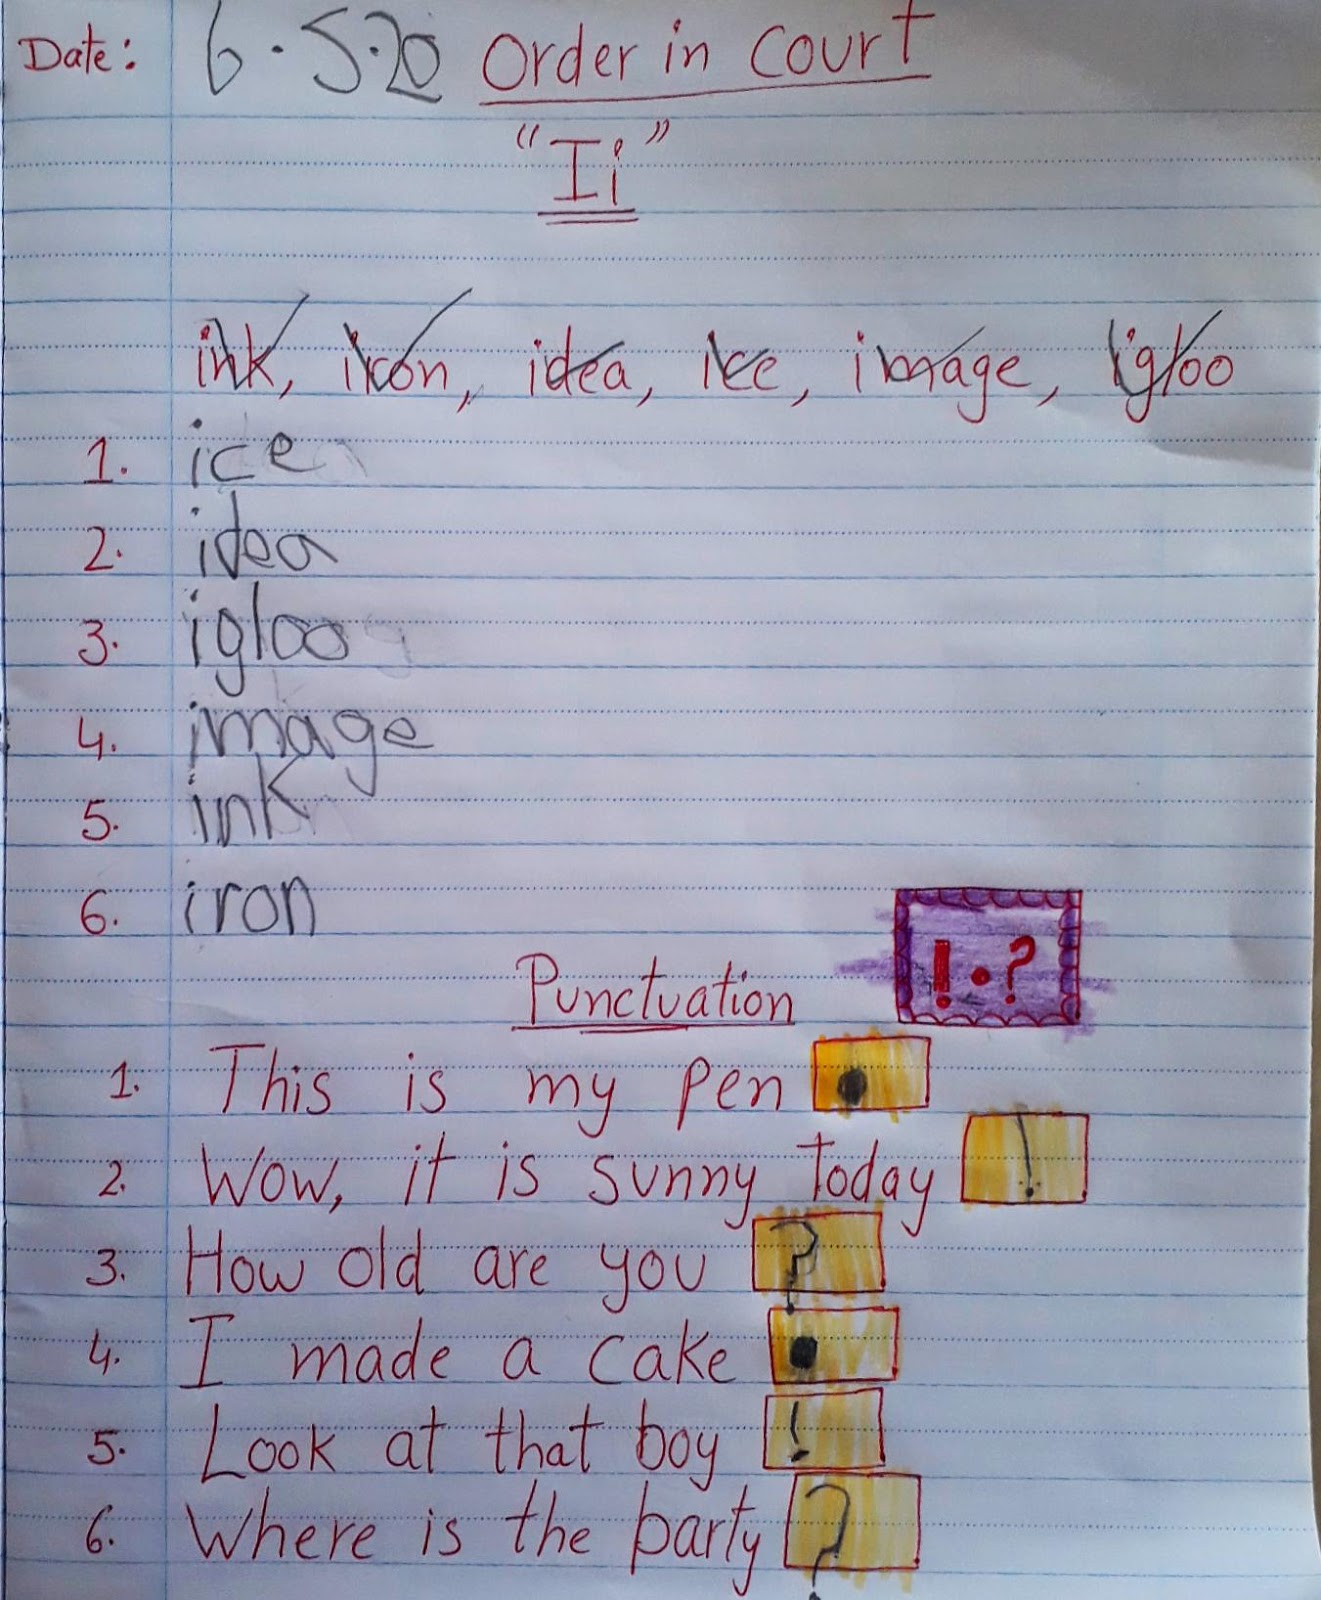 Date: 6.5.20 Order in Court
"Ii"
ink, iron, idea, ice, image, igloo
1. ice
2. idea
3. igloo
4. image
5. ink
6. iron
! . ?
Punctuation
1. This is my pen .
2. Wow, it is sunny today !
3. How old are you ?
4. I made a cake .
5. Look at that boy !
6. Where is the party ?